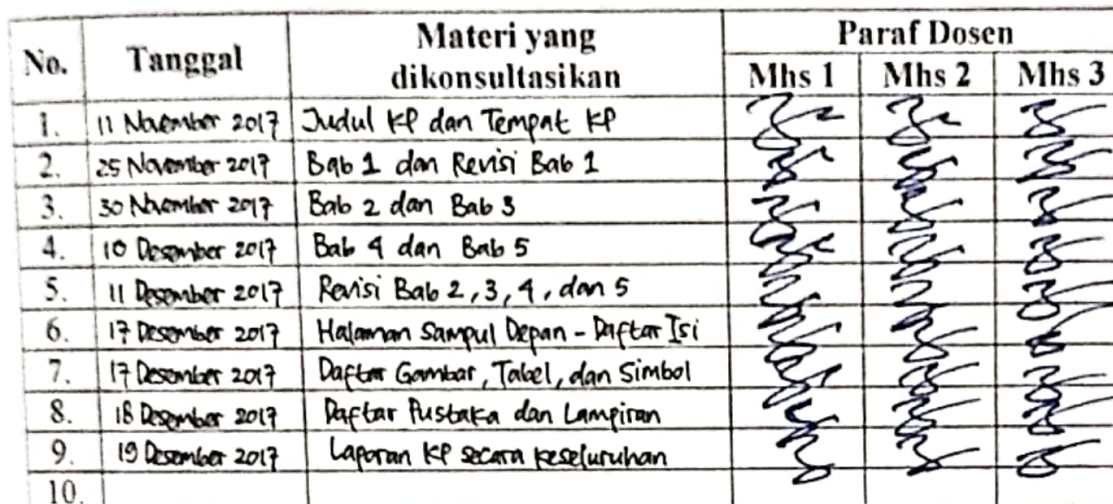 No. Tanggal Materi yang dikonsultasikan Paraf Dosen
Mhs 1 Mhs 2 Mhs 3
1. 11 November 2017 Judul KP dan Tempat KP
2. 25 November 2017 Bab 1 dan Revisi Bab 1
3. 30 November 2017 Bab 2 dan Bab 3
4. 10 Desember 2017 Bab 4 dan Bab 5
5. 11 Desember 2017 Revisi Bab 2, 3, 4, dan 5
6. 17 Desember 2017 Halaman Sampul Depan - Daftar Isi
7. 17 Desember 2017 Daftar Gambar, Tabel, dan Simbol
8. 18 Desember 2017 Daftar Pustaka dan Lampiran
9. 19 Desember 2017 Laporan KP secara keseluruhan
10.